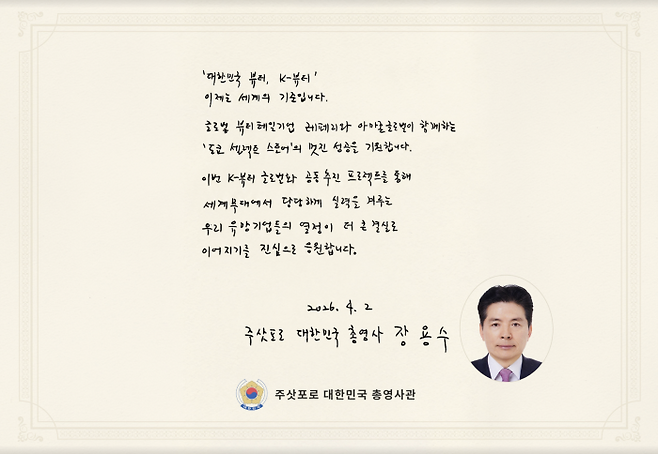 '대한민국 뷰티, K-뷰티'
이제는 세계의 기준입니다.
글로벌 뷰티테일기업 레페리와 아마존글로벌이 함께하는
'도쿄 셀렉트 스토어'의 멋진 성공을 기원합니다.
이번 K-뷰티 글로벌화 공동 추진 프로젝트를 통해
세계무대에서 당당하게 실력을 겨루는
우리 유망기업들의 열정이 더 큰 결실로
이어지기를 진심으로 응원합니다.
2026. 4. 2
주삿포로 대한민국 총영사 장용수
주삿포로 대한민국 총영사관